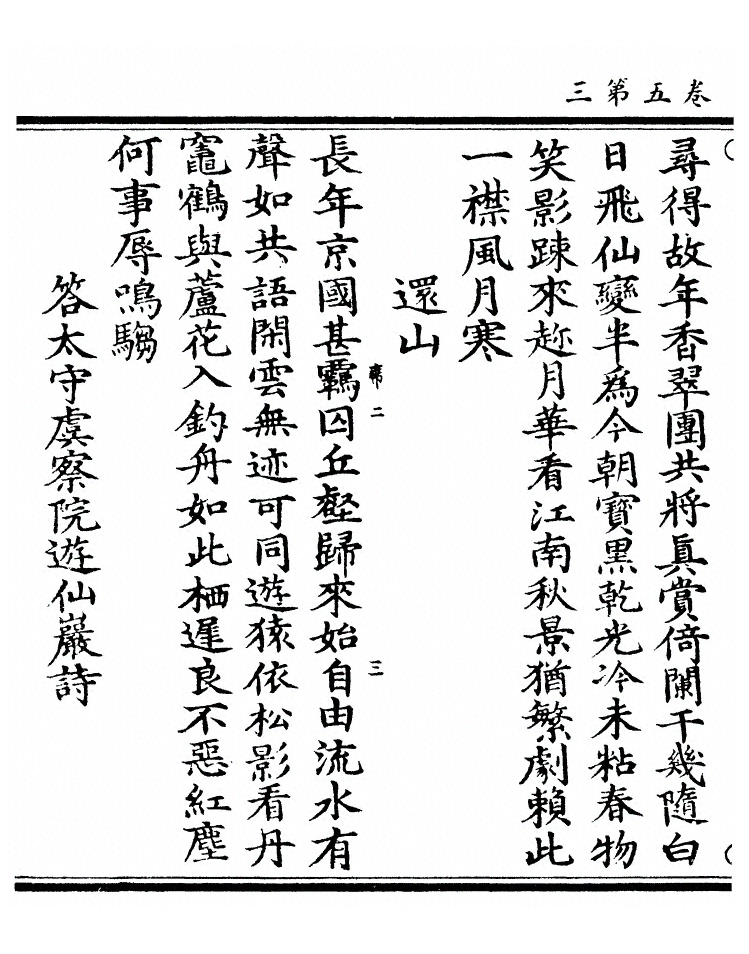 卷五第三
尋得故年香翠團共將眞賞倚闌干幾隨白
日飛仙變半爲今朝寶黑乾光冷未粘春物
笑影踈來趂月華看江南秋景猶繁劇賴此
一襟風月寒
還山
二
三
長年京國甚羈囚丘壑歸來始自由流水有
聲如共語閑雲無迹可同遊猿依松影看丹
竈鶴與蘆花入釣舟如此栖遲良不惡紅塵
何事辱鳴騶
答太守虞察院遊仙巖詩